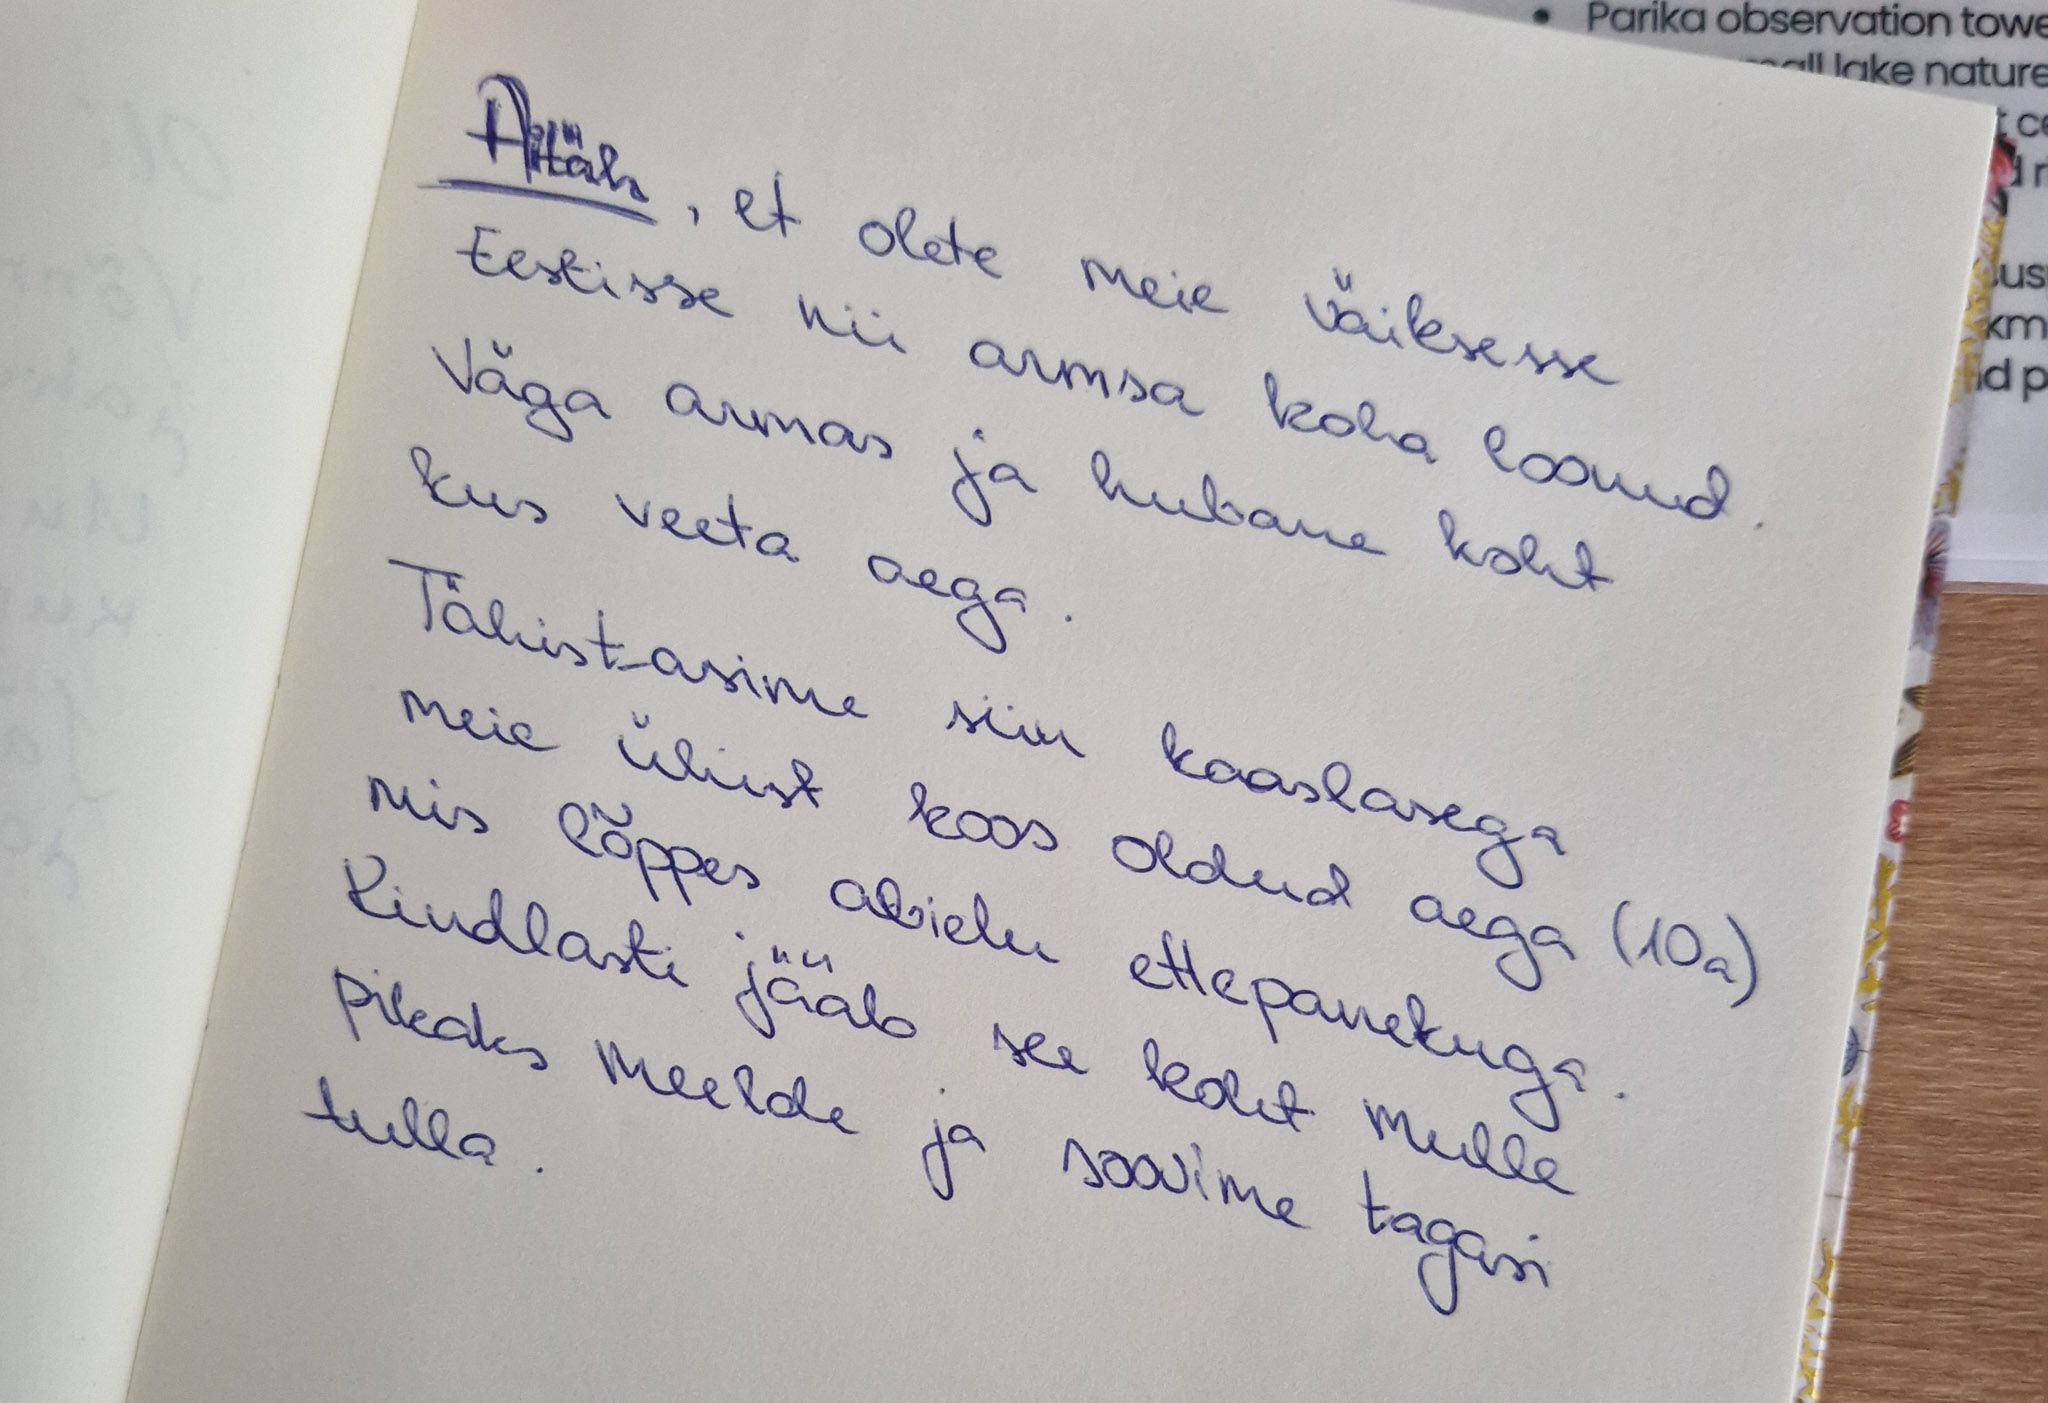 Aitäh, et olete meie väiksesse
Eestisse nii armsa koha loonud.
Väga armas ja hubane koht
kus veeta aega.
Tähistasime siin kaaslasega
meie ühist koos oldud aega (10a)
mis lõppes abielu ettepanekuga.
Kindlasti jääb see koht mulle
pikaks meelde ja soovime tagasi
tulla.
• Parika observation towe
small lake nature
km